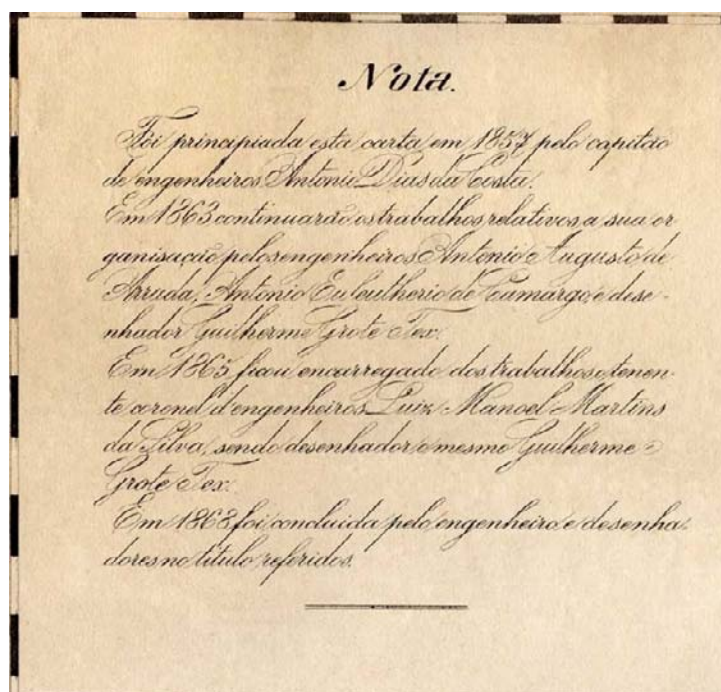 Nota.
Foi principiada esta carta em 1857 pelo capitão
de engenheiros Antonio Dias da Costa.
Em 1863 continuarão os trabalhos relativos a sua or
ganisação pelos engenheiros Antonio Augusto de
Arruda, Antonio Euleutherio de Camargo, e dese-
nhador Guilherme Grote Tex.
Em 1865 ficou encarregado dos trabalhos o tenen-
te coronel d'engenheiros Luiz Manoel Martins
da Silva, sendo desenhador o mesmo Guilherme
Grote Tex.
Em 1868 foi concluida pelo engenheiro e desenha-
dores no titulo referidos.